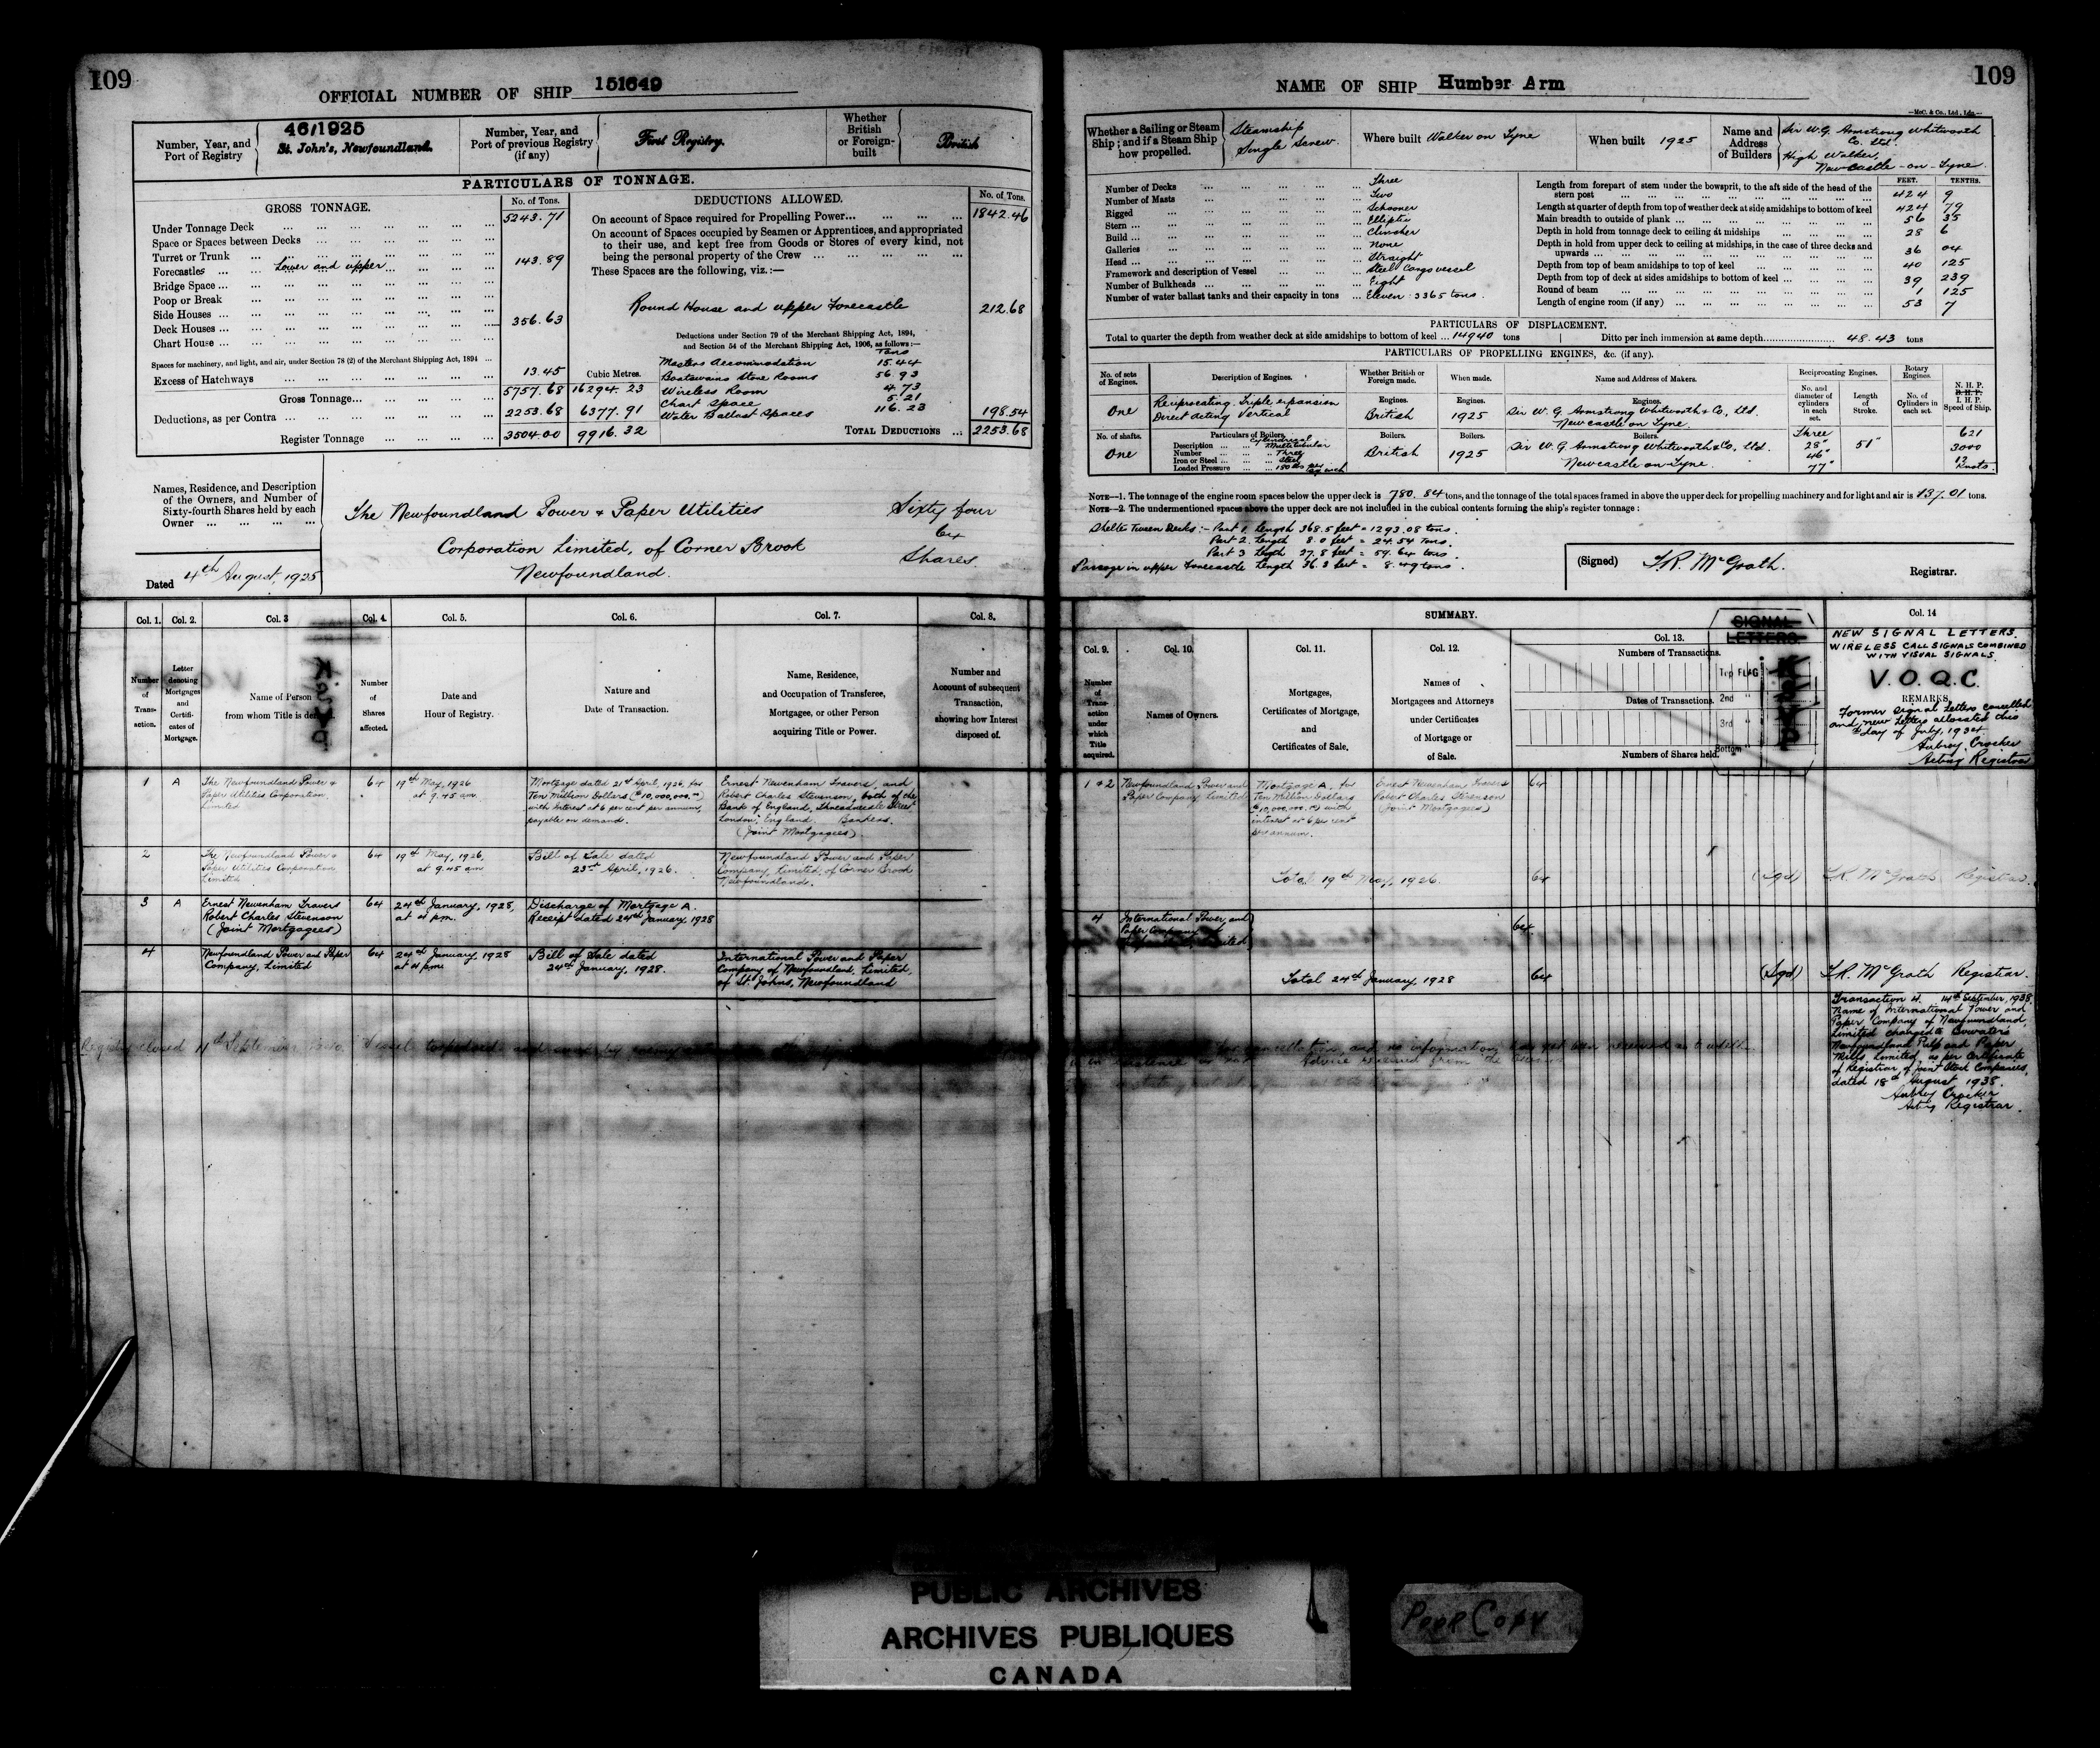 109
OFFICIAL NUMBER OF SHIP 151649
Number, Year, and Port of Registry
46/1925
St. John's, Newfoundland.
Number, Year, and Port of previous Registry (if any)
First Registry.
Whether British or Foreign-built
British
PARTICULARS OF TONNAGE.
GROSS TONNAGE.
No. of Tons.
Under Tonnage Deck 5243.71
Space or Spaces between Decks
Turret or Trunk
Forecastles Lower and upper 143.89
Bridge Space
Poop or Break
Side Houses
Deck Houses 356.63
Chart House
Spaces for machinery, and light, and air, under Section 78 (2) of the Merchant Shipping Act, 1894
Excess of Hatchways 13.45
Cubic Metres.
Gross Tonnage 5757.68 16294.23
Deductions, as per Contra 2253.68 6377.91
Register Tonnage 3504.00 9916.32
DEDUCTIONS ALLOWED.
No. of Tons.
On account of Space required for Propelling Power 1842.46
On account of Spaces occupied by Seamen or Apprentices, and appropriated
to their use, and kept free from Goods or Stores of every kind, not
being the personal property of the Crew
These Spaces are the following, viz.:—
Round House and upper Forecastle 212.68
Deductions under Section 79 of the Merchant Shipping Act, 1894,
and Section 54 of the Merchant Shipping Act, 1906, as follows:—
Tons
Masters Accommodation 15.44
Boatswains Store Rooms 56.93
Wireless Room 4.73
Chart Space 5.21
Water Ballast Spaces 116.23 198.54
TOTAL DEDUCTIONS 2253.68
Names, Residence, and Description
of the Owners, and Number of
Sixty-fourth Shares held by each
Owner
The Newfoundland Power & Paper Utilities
Corporation Limited, of Corner Brook
Newfoundland.
Sixty four
64
Shares
Dated 4th August, 1925
Col. 1. Col. 2. Col. 3 Col. 4. Col. 5. Col. 6. Col. 7. Col. 8.
Number of Transaction.
Letter denoting Mortgages and Certificates of Mortgage.
Name of Person from whom Title is derived
Number of Shares affected.
Date and Hour of Registry.
Nature and Date of Transaction.
Name, Residence, and Occupation of Transferee, Mortgagee, or other Person acquiring Title or Power.
Number and Account of subsequent Transaction, showing how Interest disposed of.
1 A The Newfoundland Power & Paper Utilities Corporation Limited
64 19th May, 1926 at 9.45 am
Mortgage dated 21st April, 1926, for
Ten Million Dollars ($10,000,000.00)
with Interest at 6 per cent per annum,
payable on demand.
Ernest Newenham Travers, and
Robert Charles Stevenson, both of the
Bank of England, Threadneedle Street
London, England. Bankers.
(Joint Mortgagees)
2 The Newfoundland Power & Paper Utilities Corporation Limited
64 19th May, 1926, at 9.45 am
Bill of Sale dated
23rd April, 1926.
Newfoundland Power and Paper
Company, Limited, of Corner Brook
Newfoundland.
3 A Ernest Newenham Travers
Robert Charles Stevenson
(Joint Mortgagees)
64 24th January, 1928, at 4 pm.
Discharge of Mortgage A.
Receipt dated 24th January, 1928
4 Newfoundland Power and Paper
Company, Limited
64 24th January, 1928 at 4 pm
Bill of Sale dated
24th January, 1928.
International Power and Paper
Company of Newfoundland, Limited,
of St. Johns, Newfoundland
Registry closed September Vessel torpedoed and
109
NAME OF SHIP Humber Arm
McC. & Co., Ltd., Ldn.
Whether a Sailing or Steam Ship; and if a Steam Ship how propelled.
Steamship
Single Screw.
Where built Walker on Tyne
When built 1925
Name and Address of Builders
Sir W.G. Armstrong Whitworth
Co. Ltd.
High Walker,
Newcastle-on-Tyne
Number of Decks Three
Number of Masts Two
Rigged Schooner
Stern Elliptic
Build Clincher
Galleries None
Head Straight
Framework and description of Vessel Steel Cargo vessel
Number of Bulkheads Eight
Number of water ballast tanks and their capacity in tons Eleven 3365 tons.
FEET. TENTHS.
Length from forepart of stem under the bowsprit, to the aft side of the head of the stern post 424 9
Length at quarter of depth from top of weather deck at side amidships to bottom of keel 424 79
Main breadth to outside of plank 56 35
Depth in hold from tonnage deck to ceiling at midships 28 6
Depth in hold from upper deck to ceiling at midships, in the case of three decks and upwards 36 04
Depth from top of beam amidships to top of keel 40 125
Depth from top of deck at sides amidships to bottom of keel 39 239
Round of beam 1 125
Length of engine room (if any) 53 7
PARTICULARS OF DISPLACEMENT.
Total to quarter the depth from weather deck at side amidships to bottom of keel 14940 tons
Ditto per inch immersion at same depth 48.43 tons
PARTICULARS OF PROPELLING ENGINES, &c. (if any).
No. of sets of Engines.
Description of Engines.
Whether British or Foreign made.
When made.
Name and Address of Makers.
Reciprocating Engines.
Rotary Engines.
No. and diameter of cylinders in each set.
Length of Stroke.
No. of Cylinders in each set.
N. H. P.
B. H. P.
I. H. P.
Speed of Ship.
One
Reciprocating. Triple expansion
Direct acting Vertical
Engines. British
Engines. 1925
Engines.
Sir W. G. Armstrong Whitworth & Co, Ltd.
Newcastle on Tyne.
No. of shafts.
One
Particulars of Boilers.
Description Cylindrical Multitubular
Number Three
Iron or Steel Steel
Loaded Pressure 180 lbs per sq. inch
Boilers. British
Boilers. 1925
Boilers.
Sir W. G. Armstrong Whitworth & Co, Ltd.
Newcastle on Tyne.
Three
28"
46"
77"
51"
621
3000
12 Knots.
NOTE—1. The tonnage of the engine room spaces below the upper deck is 780.84 tons, and the tonnage of the total spaces framed in above the upper deck for propelling machinery and for light and air is 137.01 tons.
NOTE—2. The undermentioned spaces above the upper deck are not included in the cubical contents forming the ship's register tonnage:
Shelter Tween Decks:- Part 1. Length 368.5 feet = 1293.08 tons.
Part 2. Length 8.0 feet = 24.54 tons.
Part 3 Length 27.8 feet = 59.64 tons.
Passage in upper Forecastle Length 36.3 feet = 8.49 tons.
(Signed) T.R. McGrath. Registrar.
SUMMARY.
Col. 9. Col. 10. Col. 11. Col. 12. Col. 13. Col. 14
Number of Transaction under which Title acquired.
Names of Owners.
Mortgages, Certificates of Mortgage, and Certificates of Sale.
Names of Mortgages and Attorneys under Certificates of Mortgage or of Sale.
Numbers of Transactions.
Dates of Transactions.
Numbers of Shares held.
SIGNAL LETTERS.
Top FLAG
2nd "
3rd "
Bottom "
NEW SIGNAL LETTERS.
WIRELESS CALL SIGNALS COMBINED
WITH VISUAL SIGNALS.
V.O.Q.C.
REMARKS.
Former signal Letters cancelled
and new Letters allocated this
day of July, 1934
Aubrey Crocker
Acting Registrar
1 & 2 Newfoundland Power and
Paper Company Limited
Mortgage A, for
Ten Million Dollars
($10,000,000.00) with
interest at 6 per cent
per annum.
Ernest Newenham Travers
Robert Charles Stevenson
(Joint Mortgagees)
64
Total 19th May, 1926. 64
(Sgd) T.R. McGrath Registrar.
4 International Power and
Paper Company
Limited
64
Total 24th January, 1928 64
(Sgd) T.R. McGrath Registrar.
Transaction 4. 14th September, 1938.
Name of International Power and
Paper Company of Newfoundland
Limited changed to Bowater's
Newfoundland Pulp and Paper
Mills, Limited, as per Certificate
of Registrar of Joint Stock Companies,
dated 18th August 1938.
Aubrey Crocker
Acting Registrar.
for cancellation, and no information has yet been received as to
in existence or not. Advice received from the
PUBLIC ARCHIVES
ARCHIVES PUBLIQUES
CANADA
Poor Copy